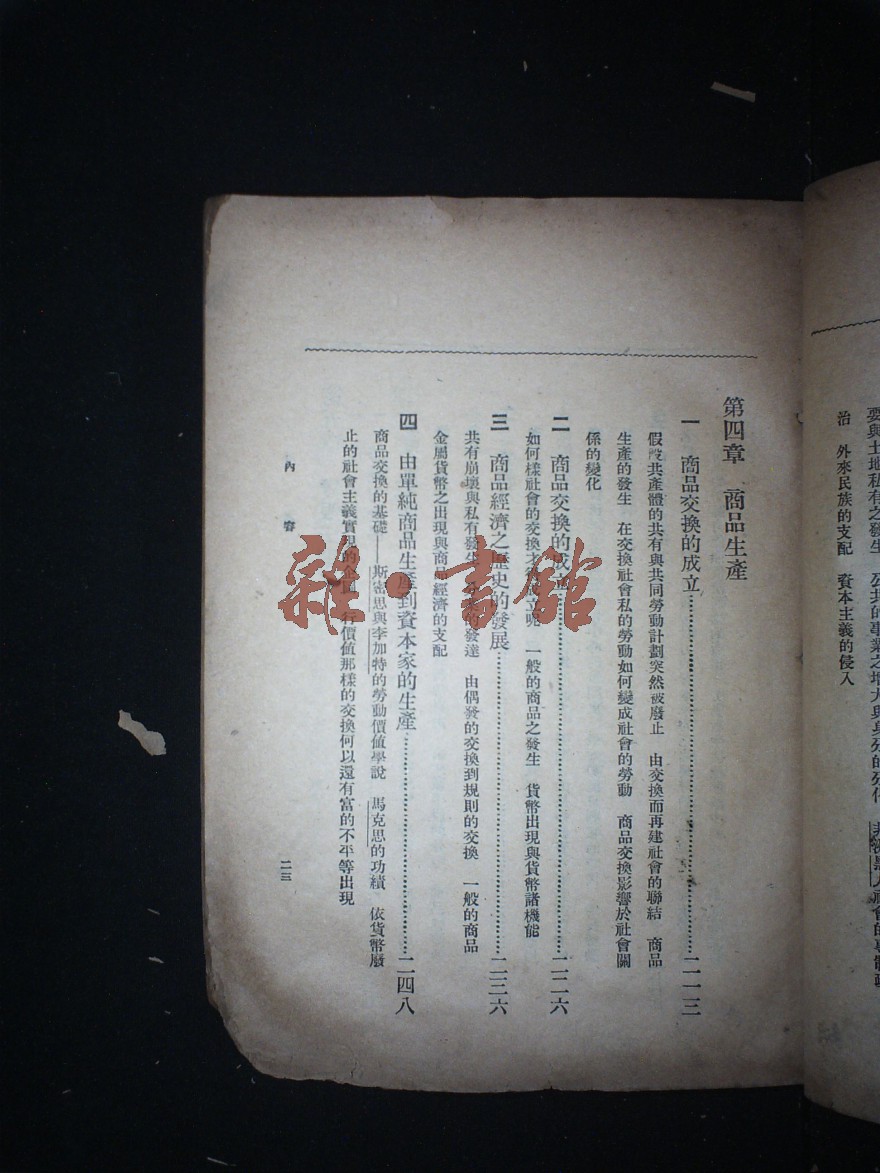 要與土地私有之發生　公共的事業之增大與身分的分化
治　外來民族的支配　資本主義的侵入
第四章　商品生產
一　商品交換的成立……二一三
假設共產體的共有與共同勞動計劃突然被廢止　由交換而再建社會的聯結　商品
生產的發生　在交換社會私的勞動如何變成社會的勞動　商品交換影響於社會關
係的變化
二　商品交換的成立……二二六
如何樣社會的交換才得成立呢　一般的商品之發生　貨幣出現與貨幣諸機能
三　商品經濟之歷史的發展……二三六
共有崩壞與私有發生　的發達　由偶發的交換到規則的交換　一般的商品
金屬貨幣之出現與商品經濟的支配
四　由單純商品生產到資本家的生產……二四八
商品交換的基礎——斯密思與李加特的勞動價值學說　馬克思的功績　依貨幣廢
止的社會主義實現的　行價值那樣的交換何以還有富的不平等出現
內容
二三
雜·書館